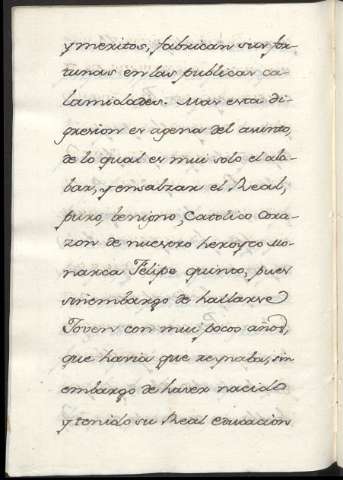 y meritos, fabrican sus for-
tunas en las publicas ca-
lamidades. Mas esta di-
gresion es agena del asunto,
de lo qual es mui solo el ala-
bar, y ensalzar el Real,
puro, benigno, Catolico Cora-
zon de nuestro heroyco Mo-
narca Felipe quinto, pues
sinembargo de hallarse
Joven con mui pocos años,
que havia que reynaba, sin
embargo de haver nacido
y tenido su Real educacion